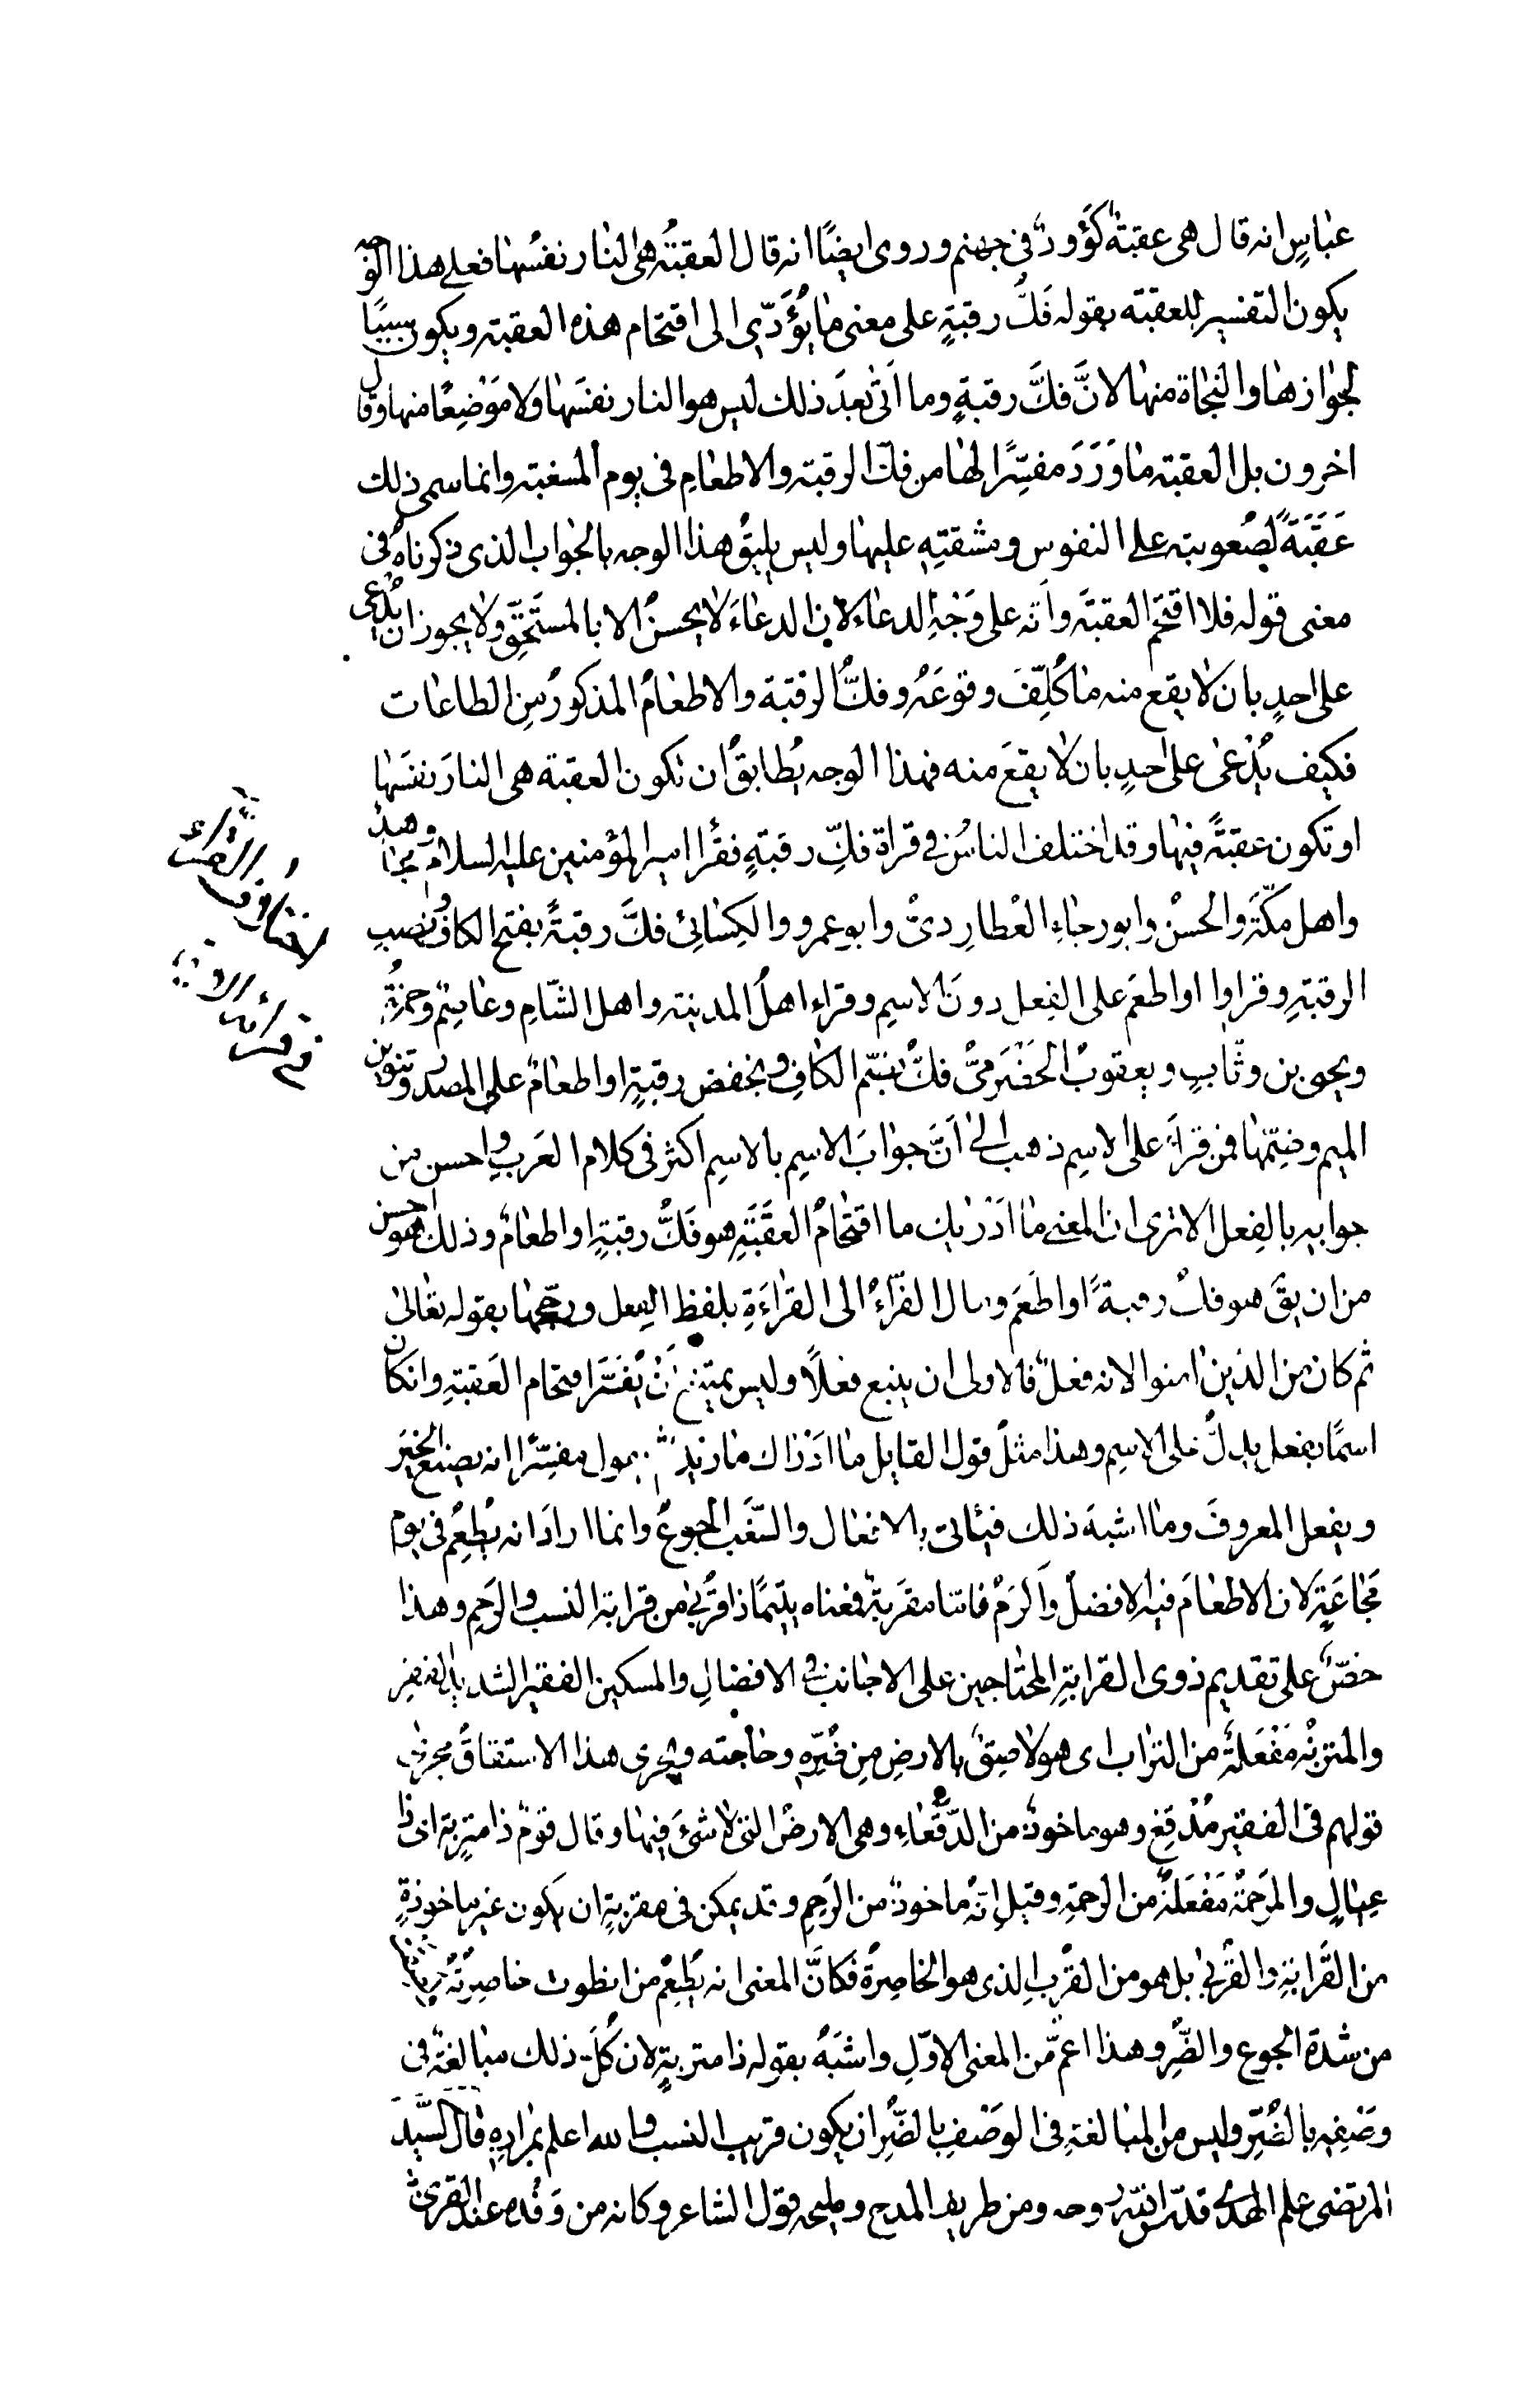 عباسٍ انه قال هى عقبةٌ كَؤُودٌ فى جهنم وروى ايضًا انه قال العقبةُ هى النار نفسُها فعلى هذا الوجه
يكون التفسير للعقبة بقوله فَكُّ رقبةٍ على معنى ما يُؤَدّى الى اقتحام هذه العقبة ويكون سببًا
لجوازها والنجاة منها لانَّ فكَّ رقبةٍ وما اَتى بعدَ ذلك ليس هو النار نفسَها ولا مَوْضِعًا منها وقال
اخرون بل العقبة ما وَرَدَ مفسِّرًا لها من فكّ الرقبة والاطعامِ فى يوم المسغبة وانما سمى ذلك
عَقَبَةً لصُعوبته على النفوس ومشقتِهِ عليها وليس يليقُ هذا الوجه بالجواب الذى ذكرناهُ فى
معنى قوله فلا اقتحَم العقبَة وانّه على وَجْهِ الدعاء لان الدعاءَ لا يحسنُ الا بالمستَحِقِّ ولا يجوز ان يُدْعى
على احدٍ بان لا يقع منه ما كُلِّفَ وقوعَهُ وفكُّ الرقبة والاطعامُ المذكورُ مِن الطاعات
فكيف يُدْعى على احدٍ بان لا يقعَ منه فهذا الوجه يُطابقُ ان تكون العقبة هى النارَ نفسَها
او تكون عقبةً فيها وقد اختلف الناسُ فى قراة فكِّ رقبةٍ فقرا امير المؤمنين عليه السلام ومجاهدٌ
واهل مكّة والحسنُ وابو رجاءِ العُطارِدىُّ وابو عمرو والكِسائىُ فكَّ رقبةً بفتح الكاف ونصبِ
الرقبةِ وقراوا او اطعَم على الفِعل دونَ الاسمِ وقراء اهلُ المدينة واهل الشّامِ وعاصِمٌ وحمزةُ
ويحيى بن وثّابٍ ويعقوبُ الحَضْرَمىُّ فكُّ بضمّ الكافِ وبخفض رقبةٍ او اطعامٌ على المصدر وتنوين
الميم وضمّها فمن قراَ على الاسم ذهب الى اَنَّ جوابَ الاسم بالاسم اكثرُ فى كلام العَرب واحسن من
جوابه بالفِعل الا ترى ان المعنى ما اَدْريك ما اقتحامُ العقَبَةِ هو فَكُّ رقبةٍ او اطعامٌ وذلك هو احسن
من ان يقَ هو فك رقبةً او اطعَمَ ومال الفرّاءُ الى القراءَةِ بلفظِ الفعل ورجّحها بقوله تعالى
ثم كان من الذين امنوا لانه فعلٌ فالاولى ان يتبع فعلًا وليس يمتنع اَنْ يُفَسَّرَ اقتحام العَقبةِ وان كان
اسمًا بفعل يدلُّ على الاسمِ وهذا مثلُ قول القايل ما اَدْراك ما زيد يقول مفسِّرًا انه يصنع الخير
ويفعل المعروفَ وما اشبهَ ذلك فياتى بالافعال والسَّغَب الجوعُ وانما ارادَ انه يُطعِمُ فى يوم
مَجاعَةٍ لان الاطعامَ فيه افضلُ واَكرَمُ فامّا مقرَبةٌ فمعناه يتيمًا ذا قُربى من قرابة النسب والرَحِم وهذا
حضٌّ على تقديم ذوى القرابةِ المحتاجين على الاجانب فى الافضالِ والمسكين الفقير الشديد الفقر
والمتربَةُ مَفْعَلةٌ من التراب اى هو لاصِقٌ بالارضِ مِن ضُرِّهِ وحاجته ويجرى هذا الاشتقاقُ مجرى
قولهم فى الفقير مُدْقِعٍ وهو ماخوذٌ من الدَّقْعاءِ وهى الارضُ التى لا شَىْءَ فيها وقال قومٌ ذا متربةٍ اى ذا
عِيالٍ والمَرْحَمَةُ مَفْعَلةٌ من الرحمةِ وقيل انّهُ ماخوذٌ من الرَحِمِ وقد يمكن فى مقربةٍ ان يكون غير ماخوذةٍ
من القَرابةِ والقُربى بل هو من القُرْبِ الذى هو الخاصِرةُ فكانَّ المعنى انه يُطعِمُ من انطوت خاصِرتُهُ
من شدة الجوع والضُرِّ وهذا اعمُّ من المعنى الاوّلِ واشبَهُ بقوله ذا متربةٍ لان كُلَّ ذلك مبالغةٌ فى
وصْفِهِ بالضُرِّ وليس من المبالغةِ فى الوَصْفِ بالضُرِّ ان يكون قريب النسب والله اعلم بمرادِهِ قال السَّيّد
المرتضى علم الهدى قدّس الله روحه ومن طريف المدح ومليحه قول الشاعر وكانه من وَفْدهِ عند القرى
اختلاف القراء
فى قراءة الا